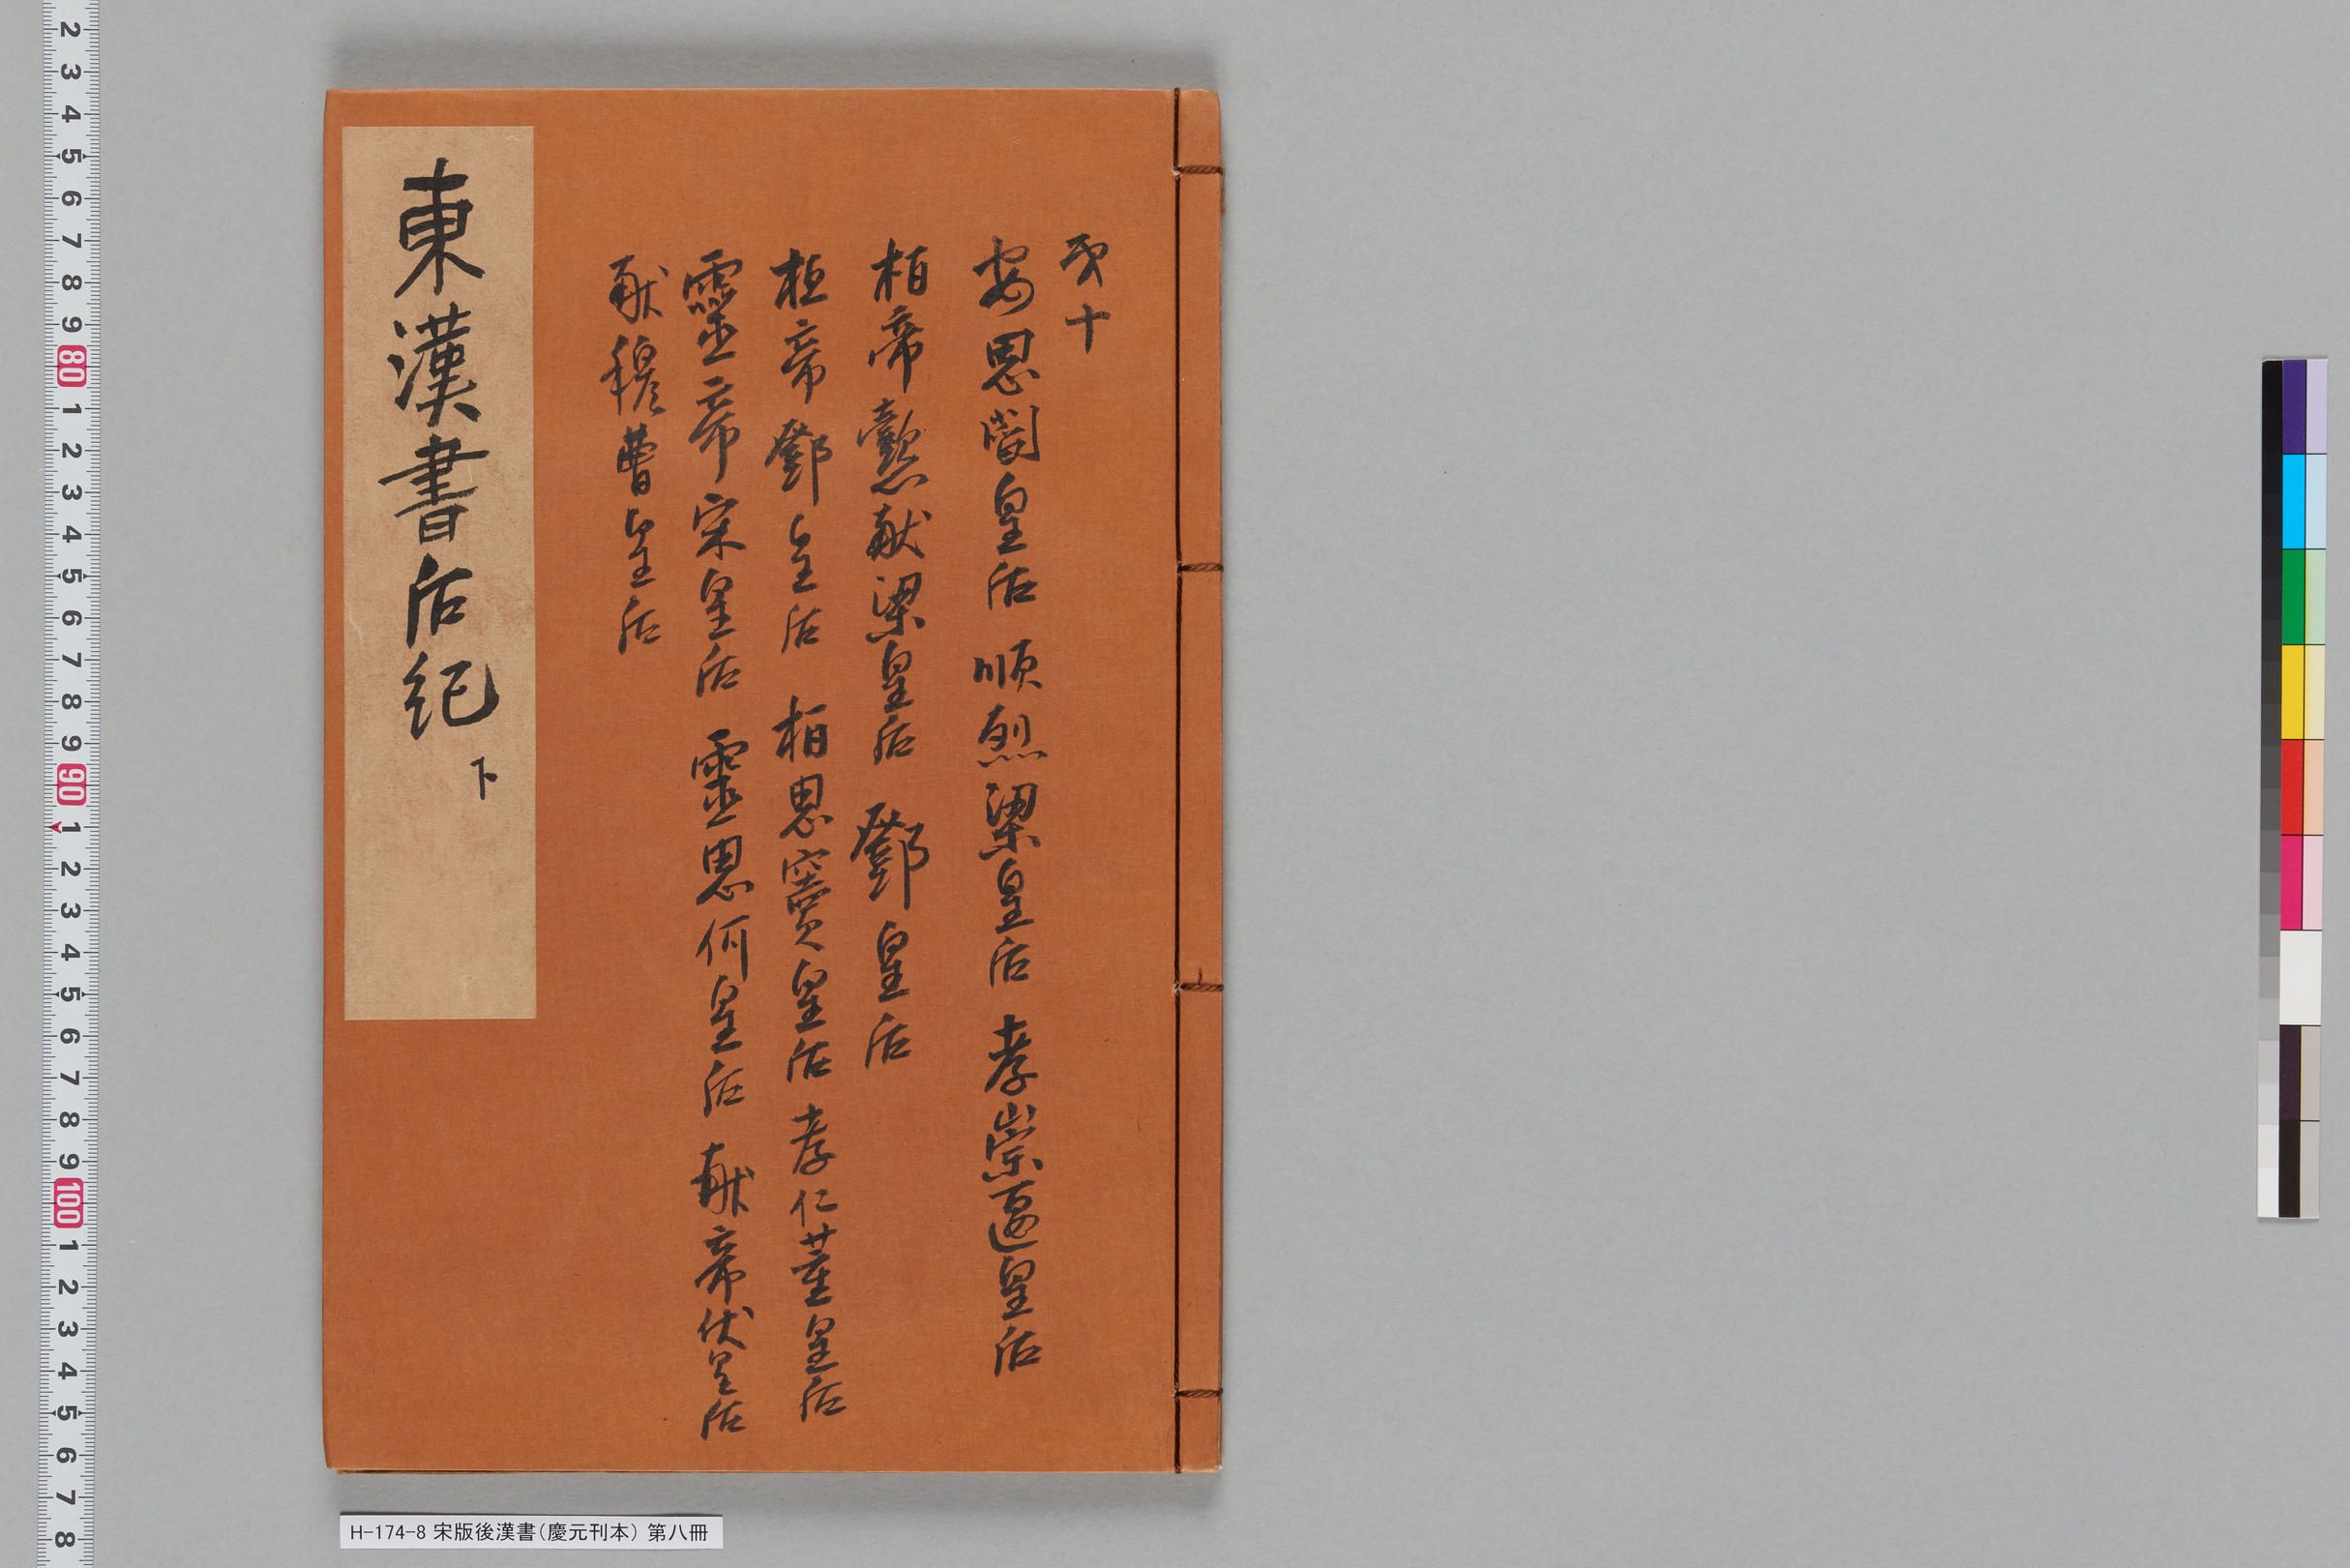 第十
安思閻皇后 順烈梁皇后 孝崇匽皇后
桓帝懿献梁皇后 鄧皇后
桓帝鄧皇后 桓思竇皇后 孝仁董皇后
靈帝宋皇后 靈思何皇后 献帝伏皇后
献穆曹皇后
東漢書后紀 下
H-174-8 宋版後漢書(慶元刊本) 第八冊
2 3 4 5 6 7 8 9 80 1 2 3 4 5 6 7 8 9 90 1 2 3 4 5 6 7 8 9 100 1 2 3 4 5 6 7 8